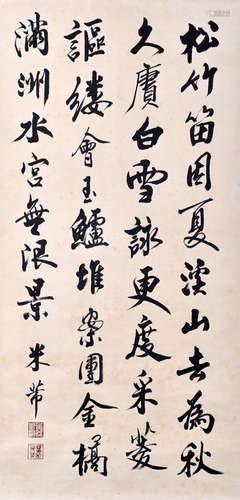 松竹留因夏溪山去為秋
久賡白雪詠更度采菱
謳縷會玉鱸堆案團金橘
滿洲水宮無限景 米芾